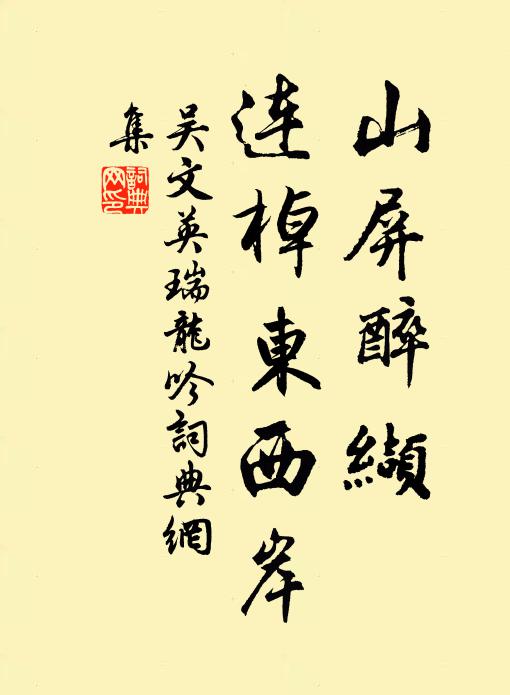 山屏醉纈
連棹東西岸
吴文英瑞龍吟詞典網
集
詞典
网印